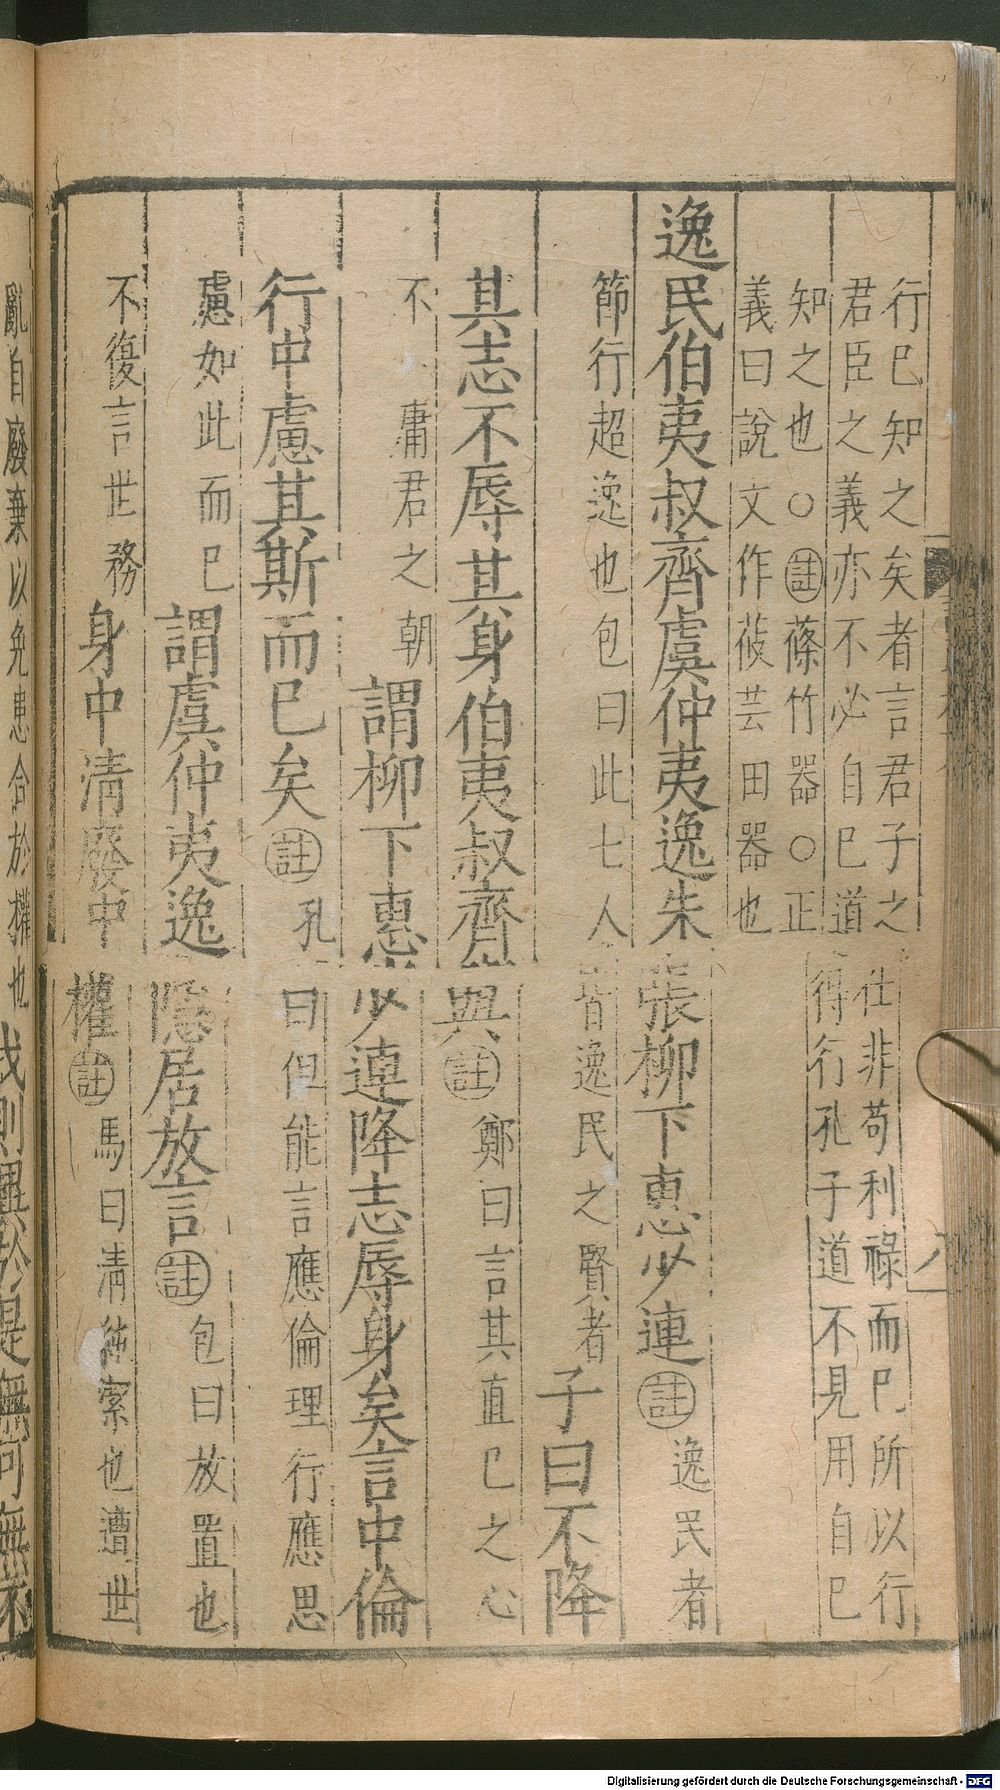 行巳知之矣者言君子之仕非苟利祿而巳所以行
君臣之義亦不必自巳道得行孔子道不見用自巳
知之也○註蓧竹器○正
義曰說文作莜芸田器也
逸民伯夷叔齊虞仲夷逸朱張柳下惠少連註逸民者
節行超逸也包曰此七人皆逸民之賢者子曰不降
其志不辱其身伯夷叔齊與註鄭曰言其直巳之心
不庸君之朝謂柳下惠少連降志辱身矣言中倫
行中慮其斯而巳矣註孔曰但能言應倫理行應思
慮如此而巳謂虞仲夷逸隱居放言註包曰放置也
不復言世務身中清廢中權註馬曰清純絜也遭世
亂自廢棄以免患合於權也我則異於是無可無不
Digitalisierung gefördert durch die Deutsche Forschungsgemeinschaft - DFG